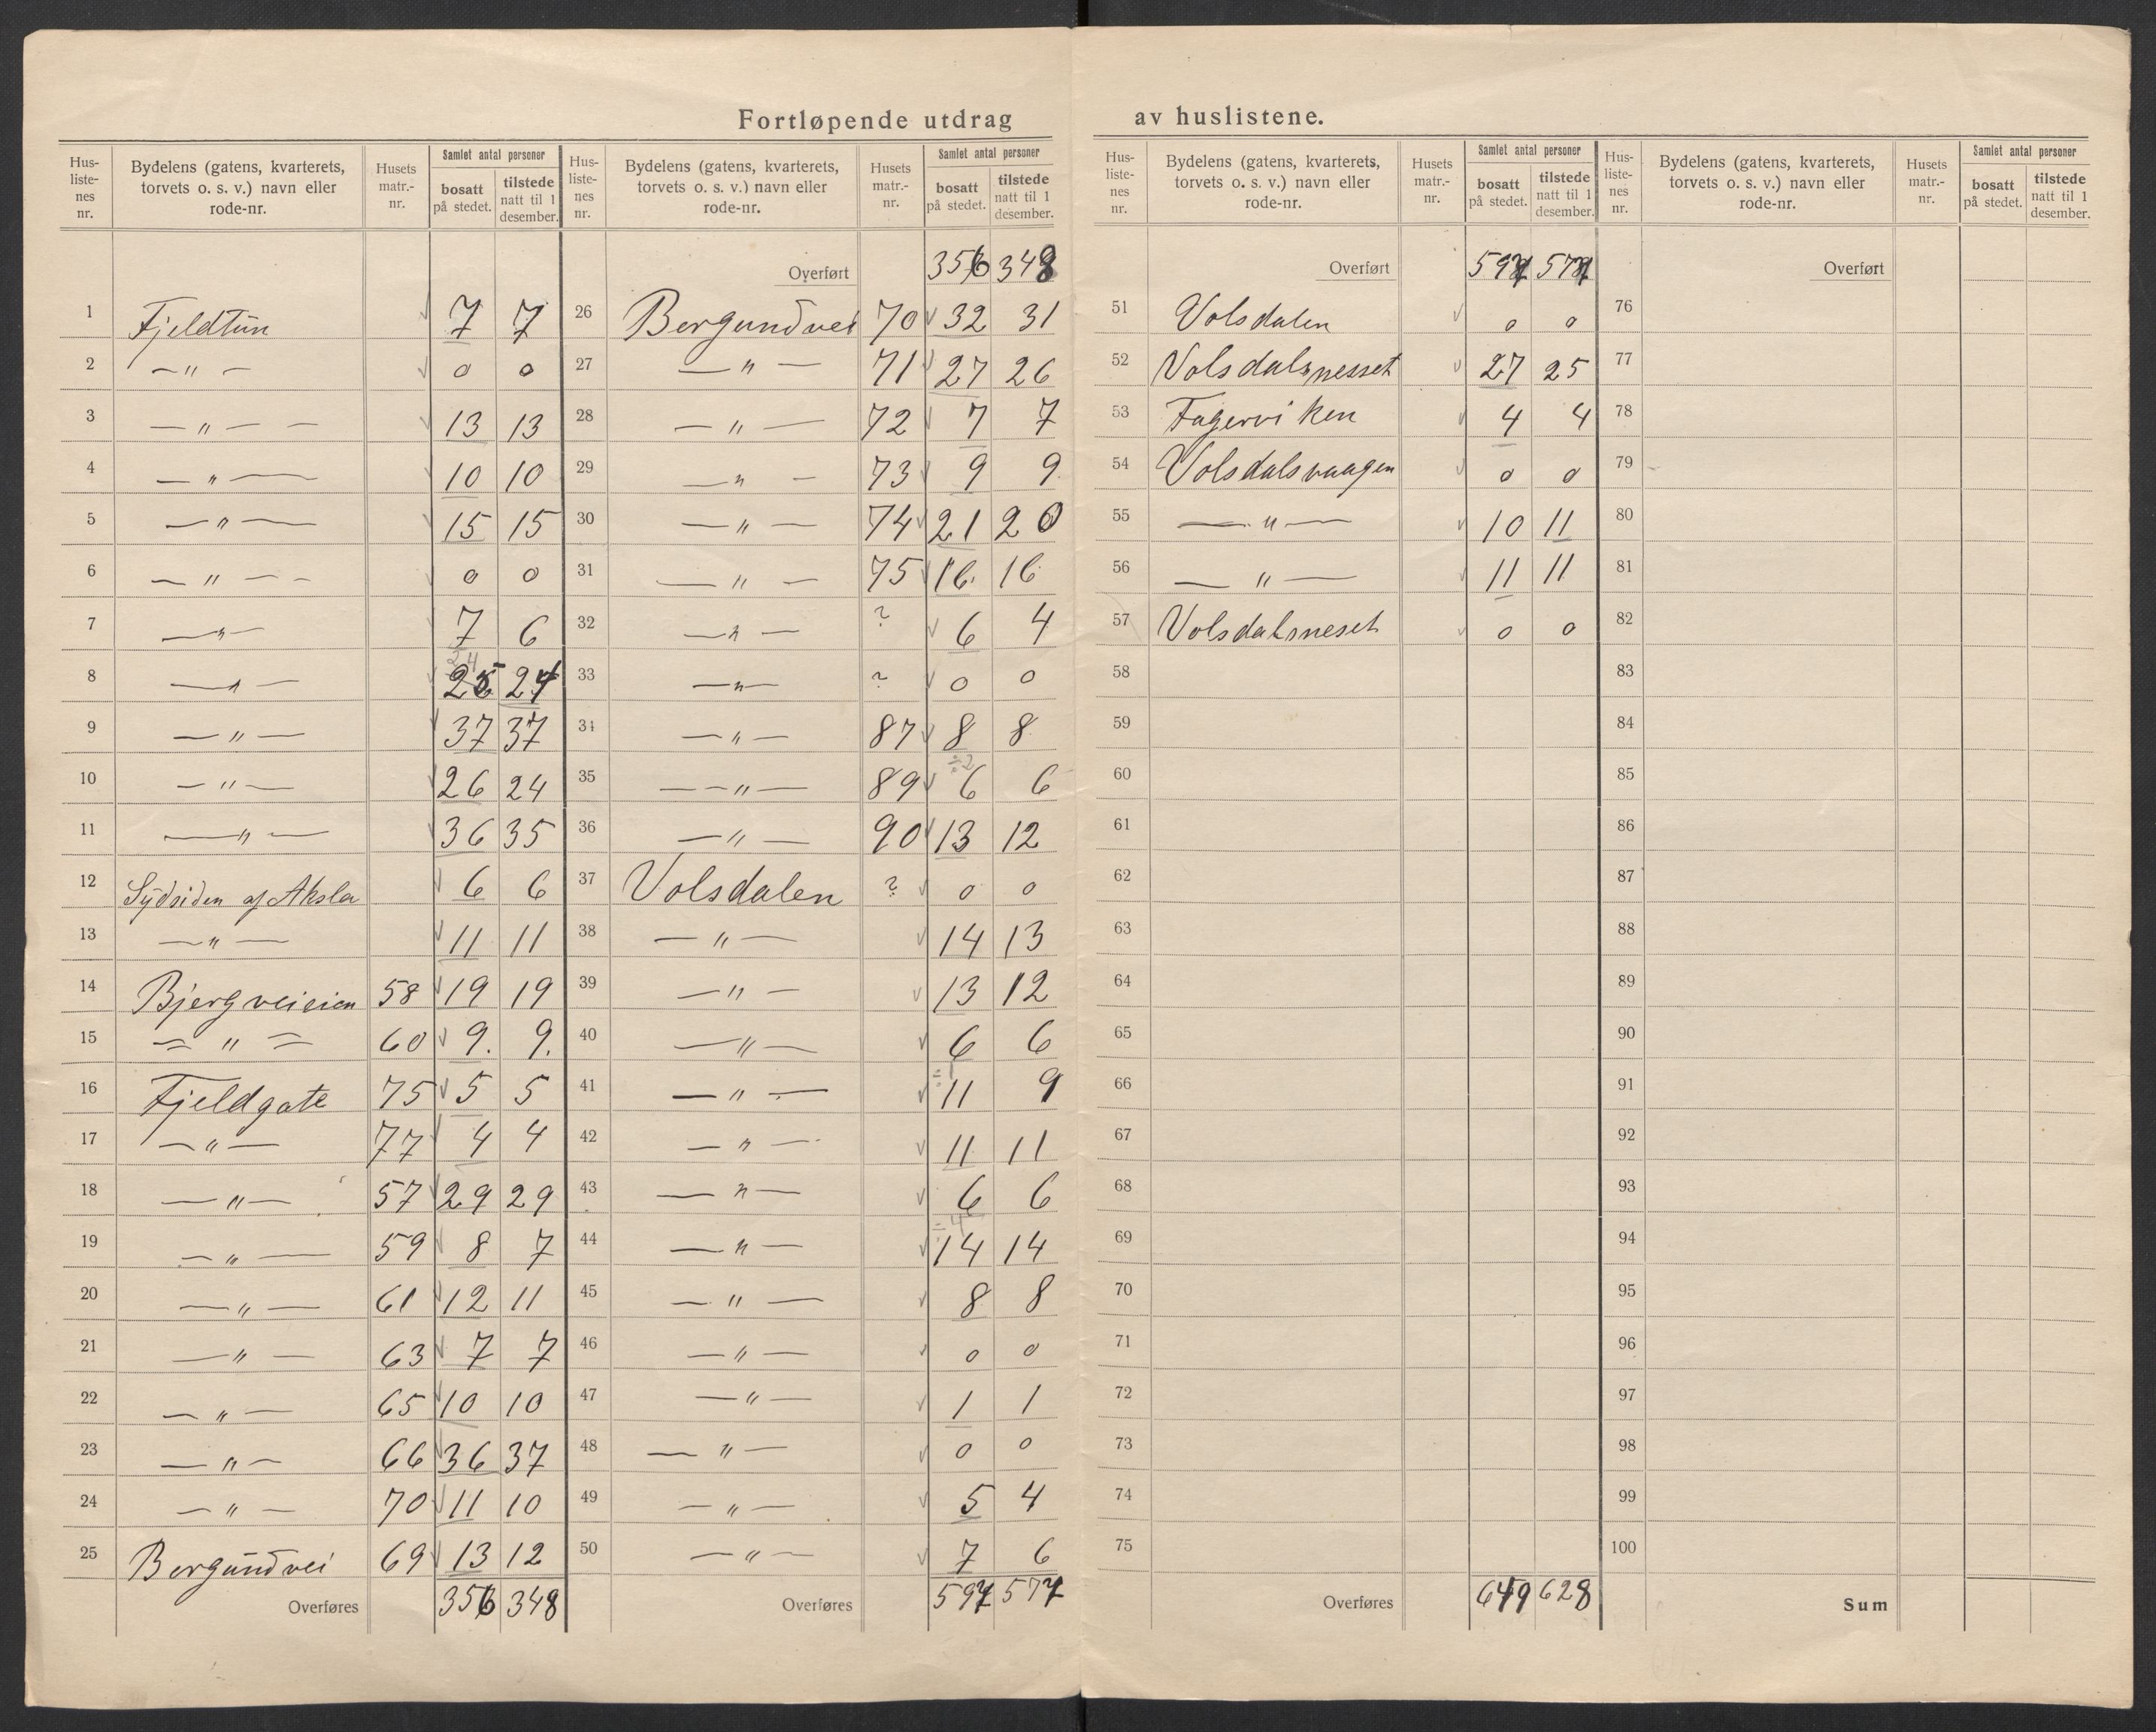 Fortløpende utdrag av huslistene.
Hus-listenes nr. Bydelens (gatens, kvarterets, torvets o. s. v.) navn eller rode-nr. Husets matr.-nr. Samlet antal personer bosatt på stedet. tilstede natt til 1 desember.
1 Fjeldtun 7 7
2 — " — 0 0
3 — " — — 13 13
4 — " — 10 10
5 — " — 15 15
6 — " — — 0 0
7 — " — 7 6
8 — " — 24
9 — " — 37 37
10 — " — 26 24
11 — " — 36 35
12 Sydsiden af Aksla 6 6
13 — " — 11 11
14 Bjergveieien 58 19 19
15 — " — 60 9. 9.
16 Fjeldgate 75 5 5
17 — " — 77 4 4
18 — " — 57 29 29
19 — " — 59 8 7
20 — " — 61 12 11
21 — " — 63 7 7
22 — " — 65 10 10
23 — " — 66 36 37
24 — " — 70 11 10
25 Borgundvei 69 13 12
Overføres 356 348
Hus-listenes nr. Bydelens (gatens, kvarterets, torvets o. s. v.) navn eller rode-nr. Husets matr.-nr. Samlet antal personer bosatt på stedet. tilstede natt til 1 desember.
Overført 356 348
26 Borgundvei 70 32 31
27 — " — 71 27 26
28 — " — 72 7 7
29 — " — 73 9 9
30 — " — 74 21 20
31 — " — 75 16 16
32 — " — ? 6 4
33 — " — ? 0 0
34 — " — 87 8 8
35 — — " — 89 ÷2 6 6
36 — " — 90 13 12
37 Volsdalen ? 0 0
38 — " — 14 13
39 — " — 13 12
40 — " — 6 6
41 — " — 11 9
42 — " — 11 11
43 — " — 6 6
44 — " — ÷4 14 14
45 — " — 8 8
46 — " — 0 0
47 — " — 1 1
48 — " — 0 0
49 — " — 5 4
50 — " — 7 6
Overføres 597 577
Hus-listenes nr. Bydelens (gatens, kvarterets, torvets o. s. v.) navn eller rode-nr. Husets matr.-nr. Samlet antal personer bosatt på stedet. tilstede natt til 1 desember.
Overført 597 577
51 Volsdalen 0 0
52 Volsdalsnesset 27 25
53 Fagerviken 4 4
54 Volsdalsvaagen 0 0
55 — " — 10 11
56 — " — 11 11
57 Volsdalsneset 0 0
58
59
60
61
62
63
64
65
66
67
68
69
70
71
72
73
74
75
Overføres 649 628
Hus-listenes nr. Bydelens (gatens, kvarterets, torvets o. s. v.) navn eller rode-nr. Husets matr.-nr. Samlet antal personer bosatt på stedet. tilstede natt til 1 desember.
Overført
76
77
78
79
80
81
82
83
84
85
86
87
88
89
90
91
92
93
94
95
96
97
98
99
100
Sum